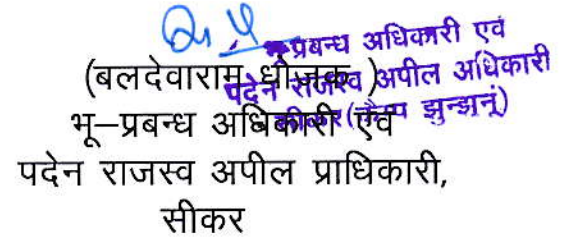 भू-प्रबन्ध अधिकारी एवं
पदेन राजस्व अपील अधिकारी
सीकर (कैम्प झुन्झनूं)
(बलदेवाराम धोजक )
भू–प्रबन्ध अधिकारी एवं
पदेन राजस्व अपील प्राधिकारी,
सीकर